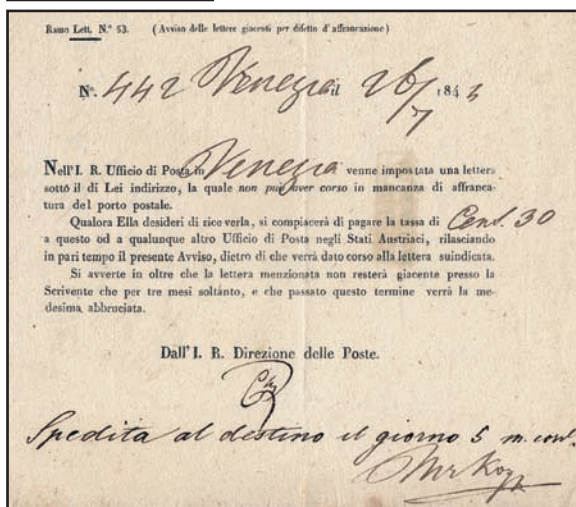 Ramo Lett. N.° 53. (Avviso delle lettere giacenti per difetto d'affrancazione)
N°. 442 Venezia il 26/7 1843
Nell'I. R. Ufficio di Posta in Venezia venne impostata una lettera
sotto il di Lei indirizzo, la quale non può aver corso in mancanza di affranca-
tura del porto postale.
Qualora Ella desideri di riceverla, si compiacerà di pagare la tassa di Cent. 30
a questo od a qualunque altro Ufficio di Posta negli Stati Austriaci, rilasciando
in pari tempo il presente Avviso, dietro di che verrà dato corso alla lettera suindicata.
Si avverte in oltre che la lettera menzionata non resterà giacente presso la
Scrivente che per tre mesi soltanto, e che passato questo termine verrà la me-
desima abbruciata.
Dall'I. R. Direzione delle Poste.
Spedita al destino il giorno 5 m. corr.